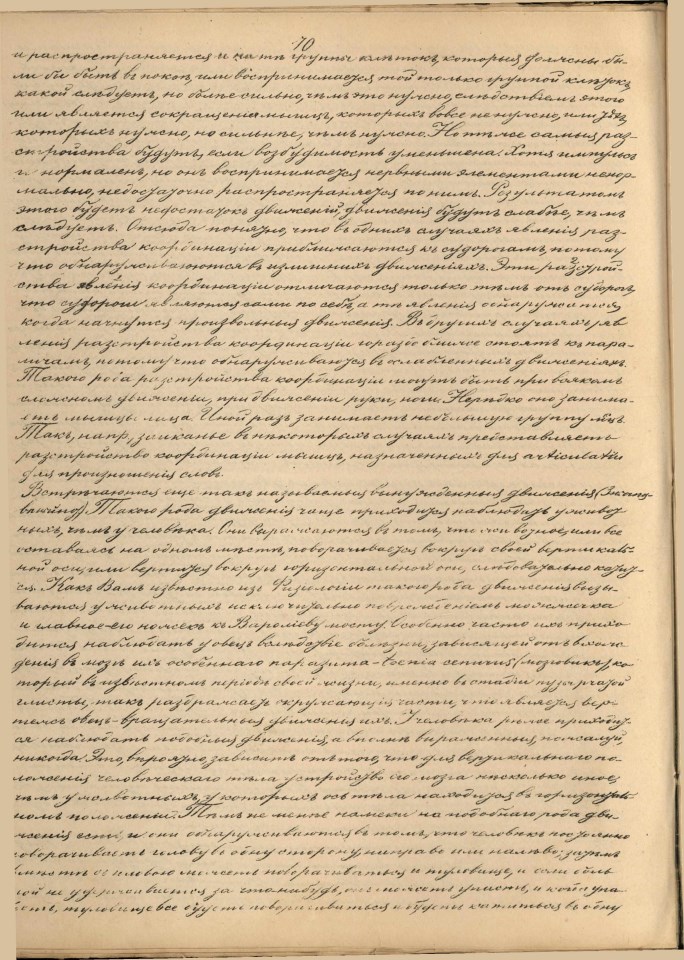 70
и распространяется и на тѣ группы клѣтокъ, которыя должны бы-
ли бы быть въ покоѣ, или воспринимается той только группой клѣтокъ
какой слѣдуетъ, но болѣе сильно, чѣмъ это нужно, слѣдствіемъ этого
или является сокращеніе мышцъ, которыхъ вовсе не нужно, или
которыхъ нужно, но сильнѣе, чѣмъ нужно. Но тѣ же самыя раз-
стройства будутъ, если возбудимость уменьшена. Хотя импульсъ
и нормаленъ, но онъ воспринимается нервными элементами ненор-
мально, недостаточно распространяется по нимъ. Результатомъ
этого будетъ недостатокъ движеній, движенія будутъ слабѣе, чѣмъ
слѣдуетъ. Отсюда понятно, что въ однихъ случаяхъ явленія раз-
стройства координаціи приближаются къ судорогамъ, потому
что обнаруживаются въ излишнихъ движеніяхъ. Эти разстрой-
ства явленія координаціи отличаются только тѣмъ отъ судорогъ,
что судороги являются сами по себѣ, а тѣ явленія обнаружатся,
когда начнутся произвольныя движенія. Въ другихъ случаяхъ яв-
ленія разстройства координаціи гораздо ближе стоятъ къ пара-
личамъ, потому что обнаруживаются въ ослабленныхъ движеніяхъ.
Такого рода разстройства координаціи могутъ быть при всякомъ
сложномъ движеніи, при движеніи руки, ноги. Нерѣдко оно занима-
етъ мышцы лица. Иной разъ занимаетъ небольшую группу мцъ.
Такъ, напр., заиканье въ нѣкоторыхъ случаяхъ представляетъ
разстройство координаціи мышцъ, назначенныхъ для articulatiи
для произношенія словъ.
Встрѣчаются еще такъ называемыя вынужденныя движенія (Zwangs-
bewegung). Такого рода движенія чаще приходится наблюдать у живот-
ныхъ, чѣмъ у человѣка. Они выражаются въ томъ, что животное, или все
оставаясь на одномъ мѣстѣ, поворачивается вокругъ своей вертикаль-
ной оси, или вертится вокругъ горизонтальной оси, слѣдовательно катает-
ся. Какъ Вамъ извѣстно изъ Физіологіи такого рода движенія вызы-
ваются у животныхъ исключительно поврежденіемъ мозжечка
и главное его ножекъ къ Вароліеву мосту. Особенно часто ихъ прихо-
дится наблюдать у овецъ вслѣдствіе болѣзни, зависящей отъ вхож-
денія въ мозгъ ихъ особеннаго паразита - Taenia cenurus (мозговикъ), ко-
торый въ извѣстномъ періодѣ своей жизни, именно въ стадіи пузырчатой
глисты, такъ раздражаетъ окружающія части, что является вер-
тежъ овецъ - вращательныя движенія ихъ. У человѣка рѣже приходит-
ся наблюдать подобныя движенія, а вполнѣ выраженныя, пожалуй,
никогда. Это, вѣроятно зависитъ отъ того, что для вертикальнаго по-
ложенія человѣческаго тѣла устройство его мозга нѣсколько иное,
чѣмъ у животныхъ, у которыхъ ось тѣла находится въ горизонталь-
номъ положеніи. Тѣмъ не менѣе намеки на подобнаго рода дви-
женія есть, и они обнаруживаются въ томъ, что человѣкъ постоянно
поворачиваетъ голову въ одну сторону, направо или налѣво; затѣмъ
вмѣстѣ съ головою можетъ поворачиваться и туловище, и если боль-
ной не удерживается за что нибудь, онъ можетъ упасть, и когда упа-
детъ, туловище все будетъ поворачиваться и будетъ катиться въ одну